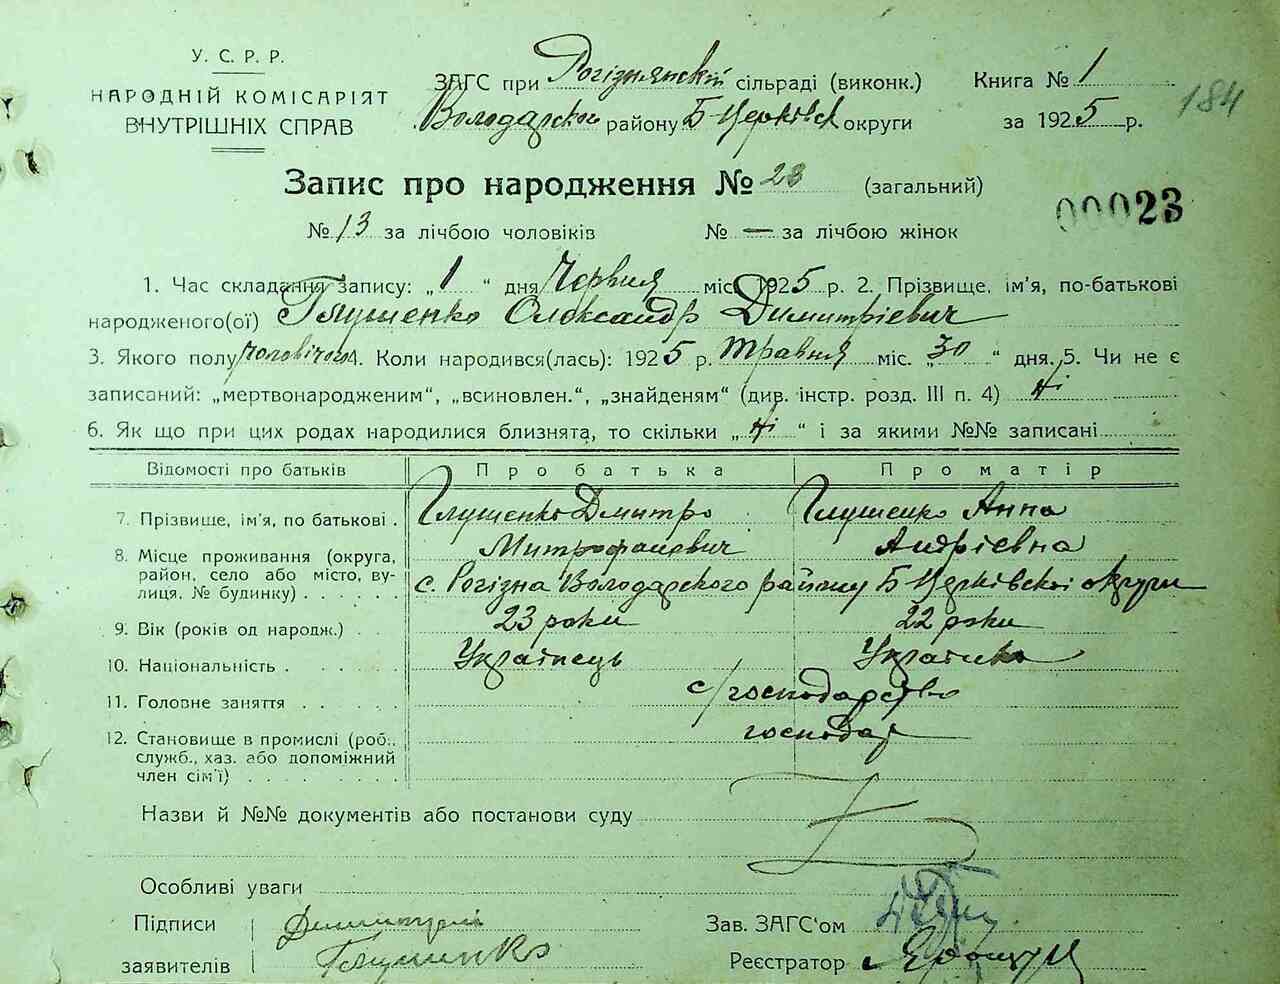 У. С. Р. Р.
НАРОДНІЙ КОМІСАРІЯТ
ВНУТРІШНІХ СПРАВ
ЗАГС при Рогізнянскій сільраді (виконк.)
Володарского району Б-Церківск округи
Книга № 1
за 1925 р.
184
Запис про народження № 23 (загальний)
00023
№ 13 за лічбою чоловіків № — за лічбою жінок
1. Час складання запису: „ 1 “ дня Червня міс. 1925 р. 2. Прізвище, ім'я, по-батькові
народженого(ої) Глушенко Олександр Димитрієвич
3. Якого полу чоловічого 4. Коли народився(лась): 1925 р. травня міс. „30 “ дня. 5. Чи не є
записаний: „мертвонародженим“, „всиновлен.“, „знайденям“ (див. інстр. розд. III п. 4) ні
6. Як що при цих родах народилися близнята, то скільки „ ні “ і за якими №№ записані
Відомості про батьків Про батька Про матір
7. Прізвище, ім'я, по батькові . Глушенко Дмитро Глушенко Анна
Митрофанович Андрієвна
8. Місце проживання (округа,
район, село або місто, ву-
лиця, № будинку) . . . . . . с. Рогізна Володарского району Б-Церківскоі округи
9. Вік (років од народж.) . . 23 роки 22 роки
10. Національність . . . . . Українець Українка
11. Головне заняття . . . . . с/господарство
12. Становище в промислі (роб.,
служб., хаз. або допоміжний
член сім'ї) . . . . . . . . господар
Назви й №№ документів або постанови суду
Особливі уваги
Підписи
заявителів
Глушенко
Зав. ЗАГС'ом
Реєстратор